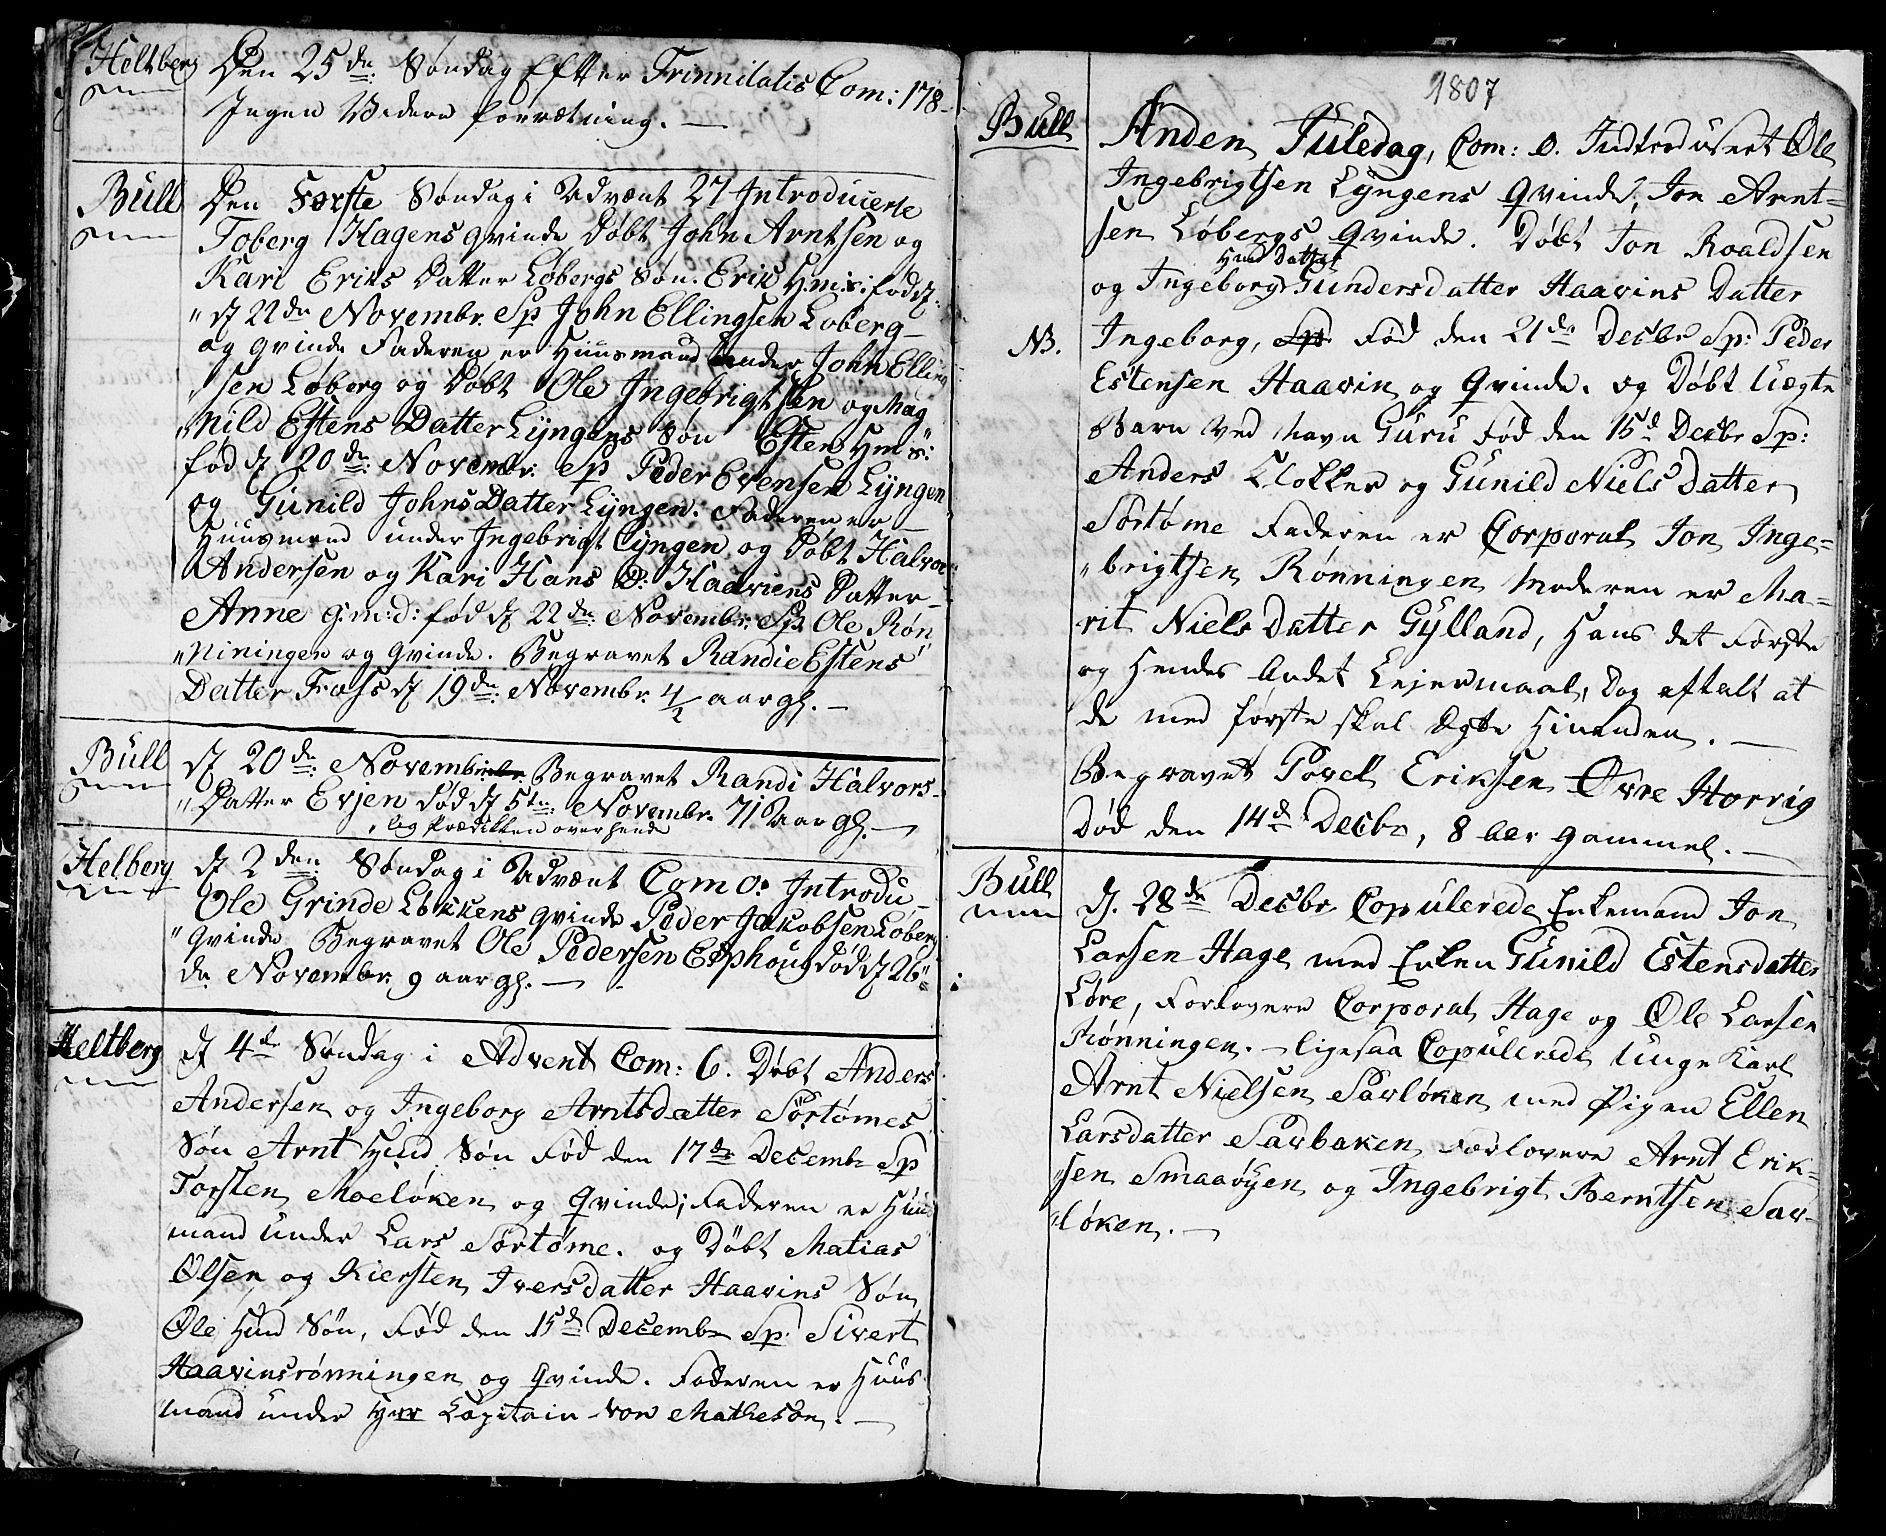 Heltberg
Den 25de Søndag Efter Trinnitatis Com: 178
Ingen Widere forrætning. —
Büll
Den Førſte Søndag i Advænt 27 Introducerte
Toberg Hagens qvinde Døbt John Arntſen og
Kari Eriks Datter Løbergs Søn. Erik H:m:s: fød d
"d 22de Novembr. Sp John Ellingſen Løberg
og qvinde Faderen er Huusmand under John Elling
"ſen Løberg og Døbt Ole Ingebrigtſen og Mag
"nild Eſtens Datter Lÿngens Søn Eſten H:m:s:
fød d 20de Novembr. Sp Peder Evenſen Lÿngen
og Gunild Johns Datter Lÿngen. Faderen er
Huusmand under Ingebrigt Lÿngen og Døbt Halvor
Anderſen og Kari Hans D. Haaviens Datter
Anne G:m:d: fød d 22de Novembr. Sp Ole Røn
"Niningen og qvinde. Begravet Randie Eſtens
Datter Fraſs d 19de Novembr. 4/2 aar gl. —
Büll
d 20de Novembr. Begravet Randi Halvors
"Datter Evjen død d 5te Novembr. 71 Aar gl. —
og Prædikken over hende
Helberg
d 2den Søndag i Advænt Com 0: Introdu
Ole Grinde Løkkens qvinde Peder Jakobſen Løberg
"qvinde Begravet Ole Pederſen Esphoug død d 26"
de Novembr. 9 aar gl. —
Heltberg
d 4de Søndag i Advent Com: 6. Døbt Anders
Anderſen og Ingeborg Arntsdatter Sørtømes
Søn Arnt Huud Søn Fød den 17de Decembr Sp
Torſten Moeløken og Qvinde; Faderen er Huus
mand under Lars Sørtøme. og Døbt Matias
Olſen og Kierſten Iversdatter Haavins Søn
Ole Huud Søn, Fød den 15de Decembr Sp: Sivert
Haavinsrønningen og Qvinde. Faderen er Huus
mand under Herr Capitain von Matheson. —
1807
Büll
Anden Juledag, Com: 0. Indtroduseret Ole
Ingebrigtſen Lyngens Qvinde, Jon Arnt=
ſen Løbergs Qvinde. Døbt Jon Roaldſen
Huud Datter
og Ingeborg Gundersdatter Haavins Datter
NB.
Ingeborg, Sp: Fød den 21de Decbr Sp: Peder
Estenſen Haavin og Qvinde. og Døbt Uægte
Barn ved Navn Guru Fød den 15de Decbr Sp:
Anders Klokker og Gunild Niels datter
Sørtøme Faderen er Corporal Jon Inge=
"brigtſen Rønningen Moderen er Ma=
rit Niels Datter Gylland, Hans det Første
og Hendes Andet Leiermaal, Dog aftalt at
de med første skal Ægte hinanden. —
Begravet Povel Erikſen Øvre Horrig
Død den 14de Decbr, 8 Aar gammel. —
Büll
D. 28de Decbr Copulerede Enkemand Jon
Larſen Hage med Enken Gunild Estensdatter
Løre, Forlovere Corporal Hage og Ole Larſen
Rønningen. — ligesaa Copulerede Unge Karl
Arnt Nielſen Savløken med Pigen Ellen
Larsdatter Savbaken, Forlovere Arnt Erik=
"ſen Smaaøyen og Ingebrigt Berntſen Sav-
"løken. —